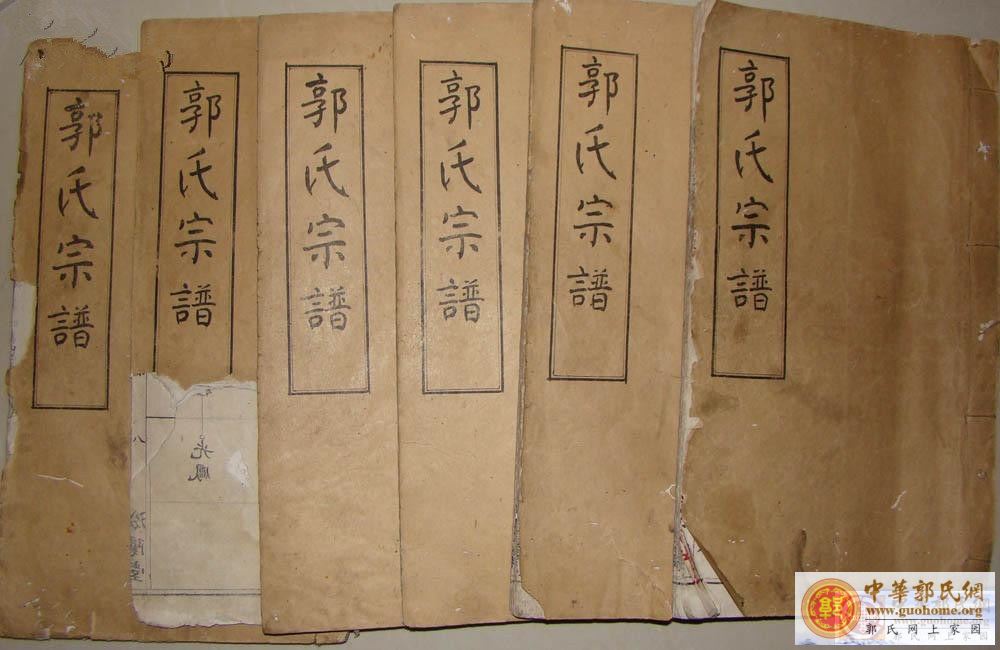 郭氏宗譜
郭氏宗譜
郭氏宗譜
郭氏宗譜
郭氏宗譜
郭氏宗譜
光鳳
八
汾陽堂
中華郭氏網
www.guohome.org
郭氏网上家园